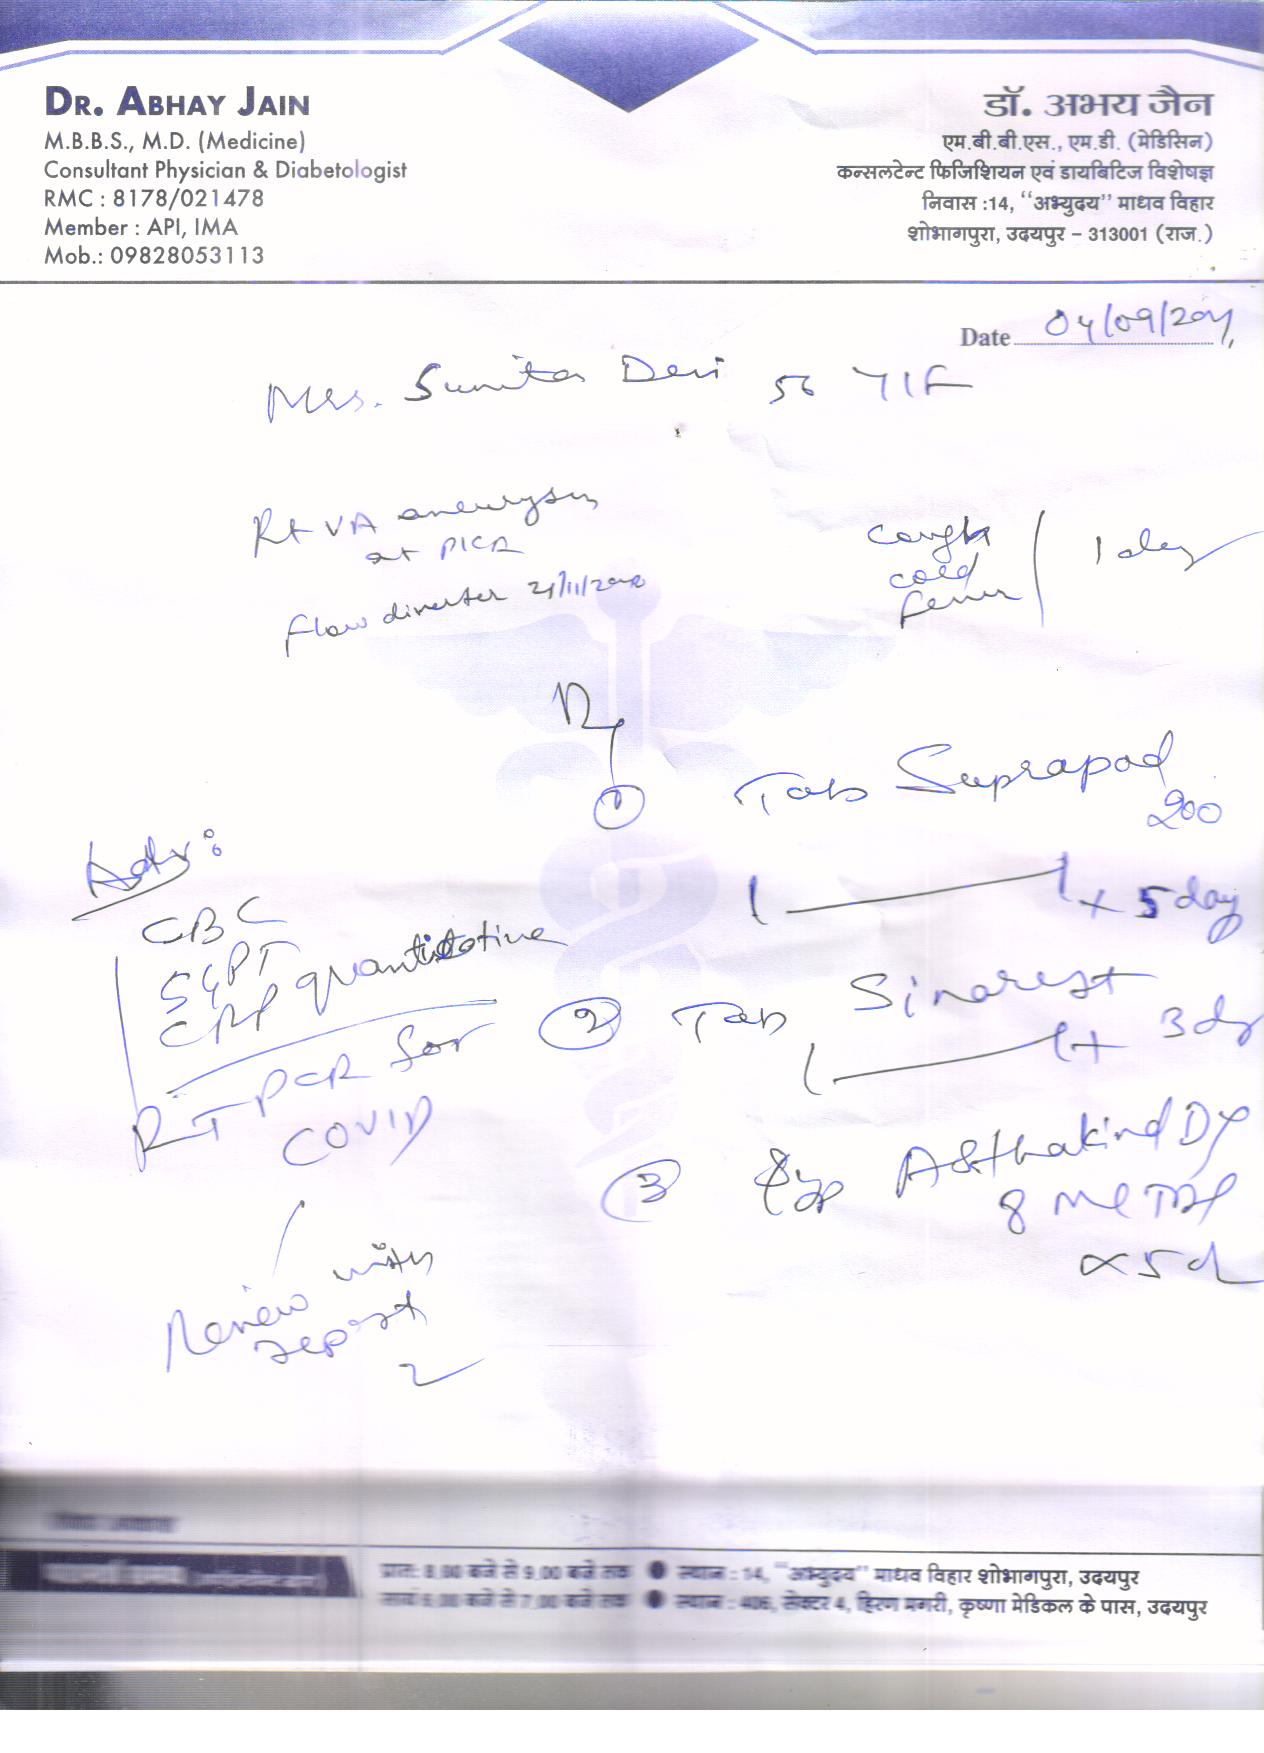 DR. ABHAY JAIN
M.B.B.S., M.D. (Medicine)
Consultant Physician & Diabetologist
RMC : 8178/021478
Member : API, IMA
Mob.: 09828053113
डॉ. अभय जैन
एम.बी.बी.एस., एम.डी. (मेडिसिन)
कन्सलटेन्ट फिजिशियन एवं डायबिटिज विशेषज्ञ
निवास :14, ‘‘अभ्युदय’’ माधव विहार
शोभागपुरा, उदयपुर – 313001 (राज.)
Date 04/09/
Mrs. Sunita Devi 56 Y/F
Rt VA aneurysm
at PICA
flow diverter
cough
cold
fever
1 day
Rx
1 Tab Suprapod
200
1 — 1 x 5 day
2 Tab Sinarest
1 — 1 x 3 dy
3 Syp Asthakind DX
8 ML TDS
x 5 d
Adv:
CBC
SGPT
CRP quantitative
RT PCR for
COVID
Review with
report
प्रात: 8.00 बजे से 9.00 बजे तक ● स्थान : 14, ‘‘अभ्युदय’’ माधव विहार शोभागपुरा, उदयपुर
सायं 6.00 बजे से 7.00 बजे तक ● स्थान : 406, सेक्टर 4, हिरण मगरी, कृष्णा मेडिकल के पास, उदयपुर